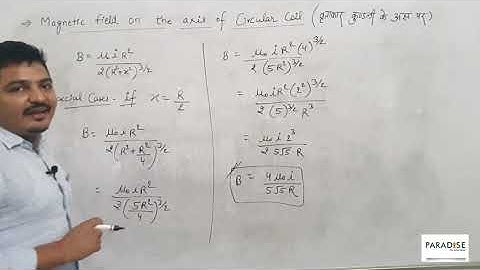 → Magnetic field on the axis of Circular Coil (वृत्ताकार कुण्डली के अक्ष पर)
B = μ₀ i R² / 2(R²+x²)^3/2
Special Cases:- if x = R/2
B = μ₀ i R² / 2(R² + R²/4)^3/2
= μ₀ i R² / 2(5R²/4)^3/2
B = μ₀ i R² (4)^3/2 / 2 (5R²)^3/2
= μ₀ i R² (2²)^3/2 / 2 (5)^3/2 R³
= μ₀ i 2³ / 2 5√5 R
B = 4 μ₀ i / 5√5 R
PARADISE